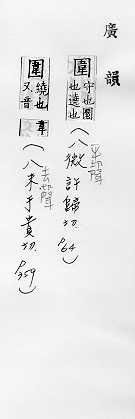 廣韻
圍 守也圜也遶也 (八微許歸切 P64)
平聲
圍 繞也又音韋 (八未于貴切 P359)
去聲